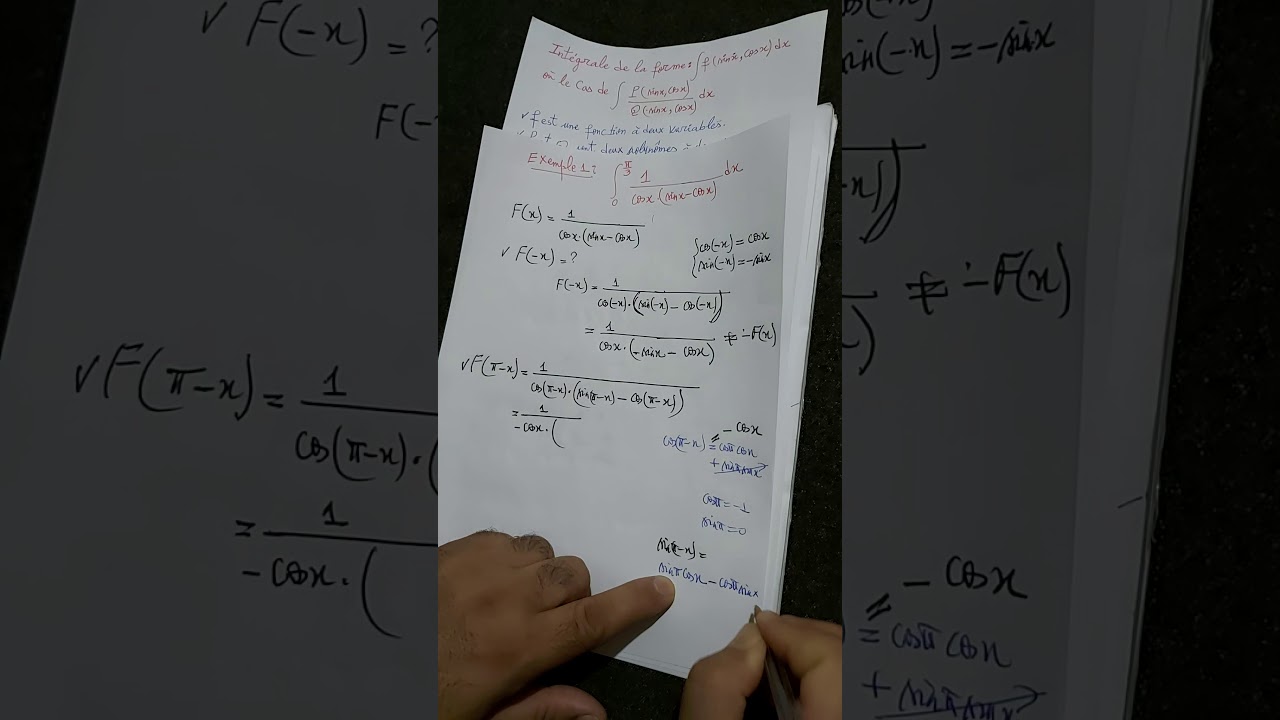 Intégrale de la forme: ∫ f(sinx, cosx) dx
où le cas de ∫ P(sinx, cosx) / Q(sinx, cosx) dx
✓ f est une fonction à deux variables.
deux polynômes à
Exemple 1: ∫₀^(π/3) 1 / (cosx · (sinx - cosx)) dx
F(x) = 1 / (cosx · (sinx - cosx))
✓ F(-x) = ?
{ cos(-x) = cosx
{ sin(-x) = -sinx
F(-x) = 1 / (cos(-x) · (sin(-x) - cos(-x)))
= 1 / (cosx · (-sinx - cosx)) ≠ -F(x)
✓ F(π-x) = 1 / (cos(π-x) · (sin(π-x) - cos(π-x)))
= 1 / (-cosx · (
- cosx
cos(π-x) = cosπ cosx
+ sinπ sinx
cosπ = -1
sinπ = 0
sin(π-x) =
sinπ cosx - cosπ sinx